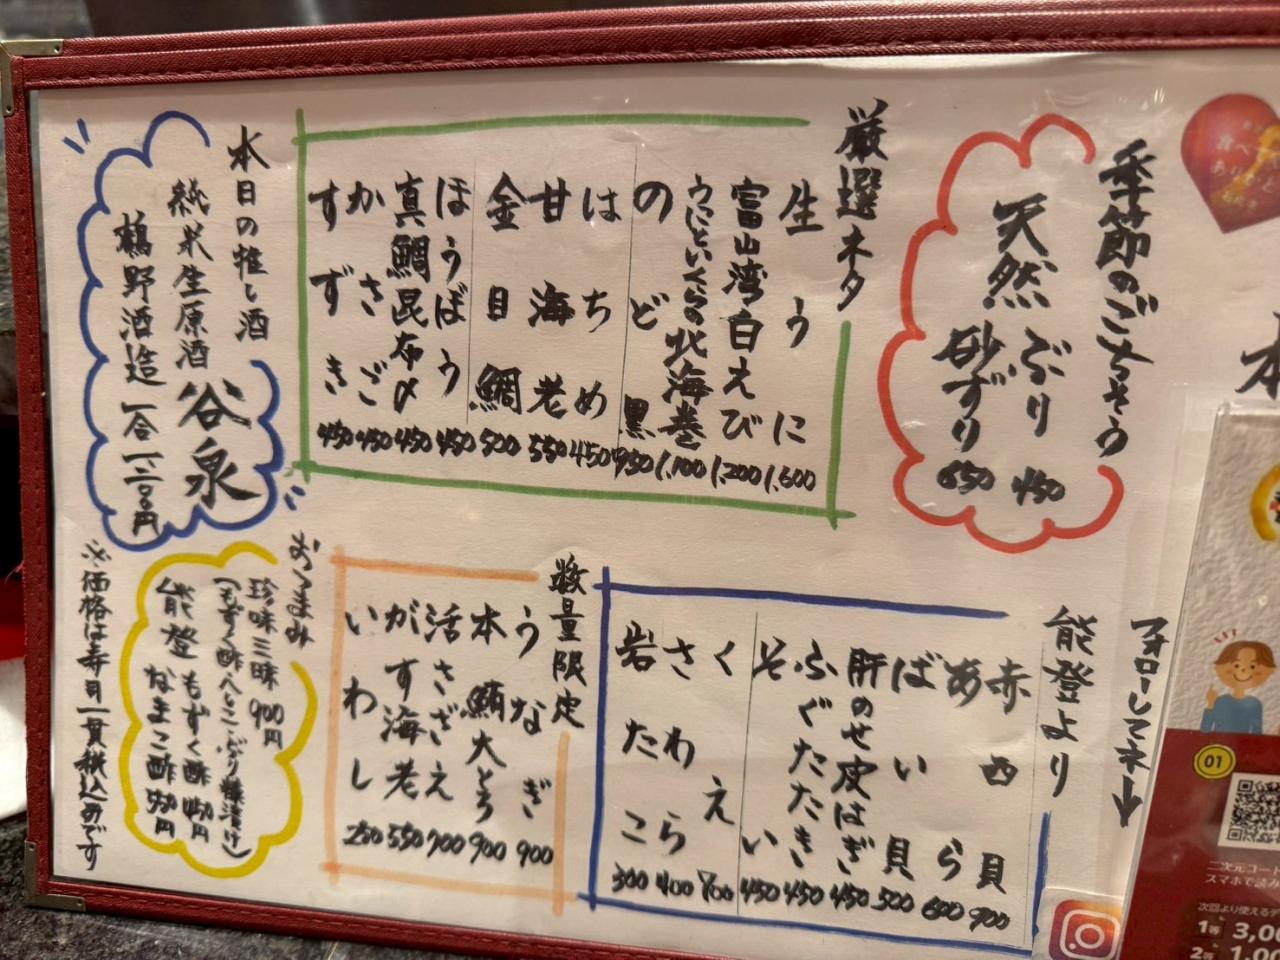 季節のごちそう
天然ぶり 450
砂ずり 650
厳選ネタ
生うに 1,600
富山湾白えび 1,200
うにといくらの北海巻 1,100
のど黒 950
はちめ 450
甘海老 550
金目鯛 500
ほうぼう 450
真鯛昆布〆 450
かさご 450
すずき 450
本日の推し酒
純米生原酒 谷泉
鶴野酒造 一合 一二〇〇円
フォローしてネ→
能登より
赤西貝 900
あら 600
ばい貝 500
肝のせ皮はぎ 450
ふぐたたき 450
そい 450
くえ 700
さわら 400
岩たこ 300
数量限定
うなぎ 900
本鮪大とろ 900
活さざえ 700
がす海老 550
いわし 250
おつまみ
珍味三昧 900円
(もずく酢、へしこ、ぶり糠漬け)
能登 もずく酢 450円
なまこ酢 550円
※価格は寿司一貫税込みです
01
二次元コード
スマホで読み
次回より使える
1等 3,0
2等 1,00